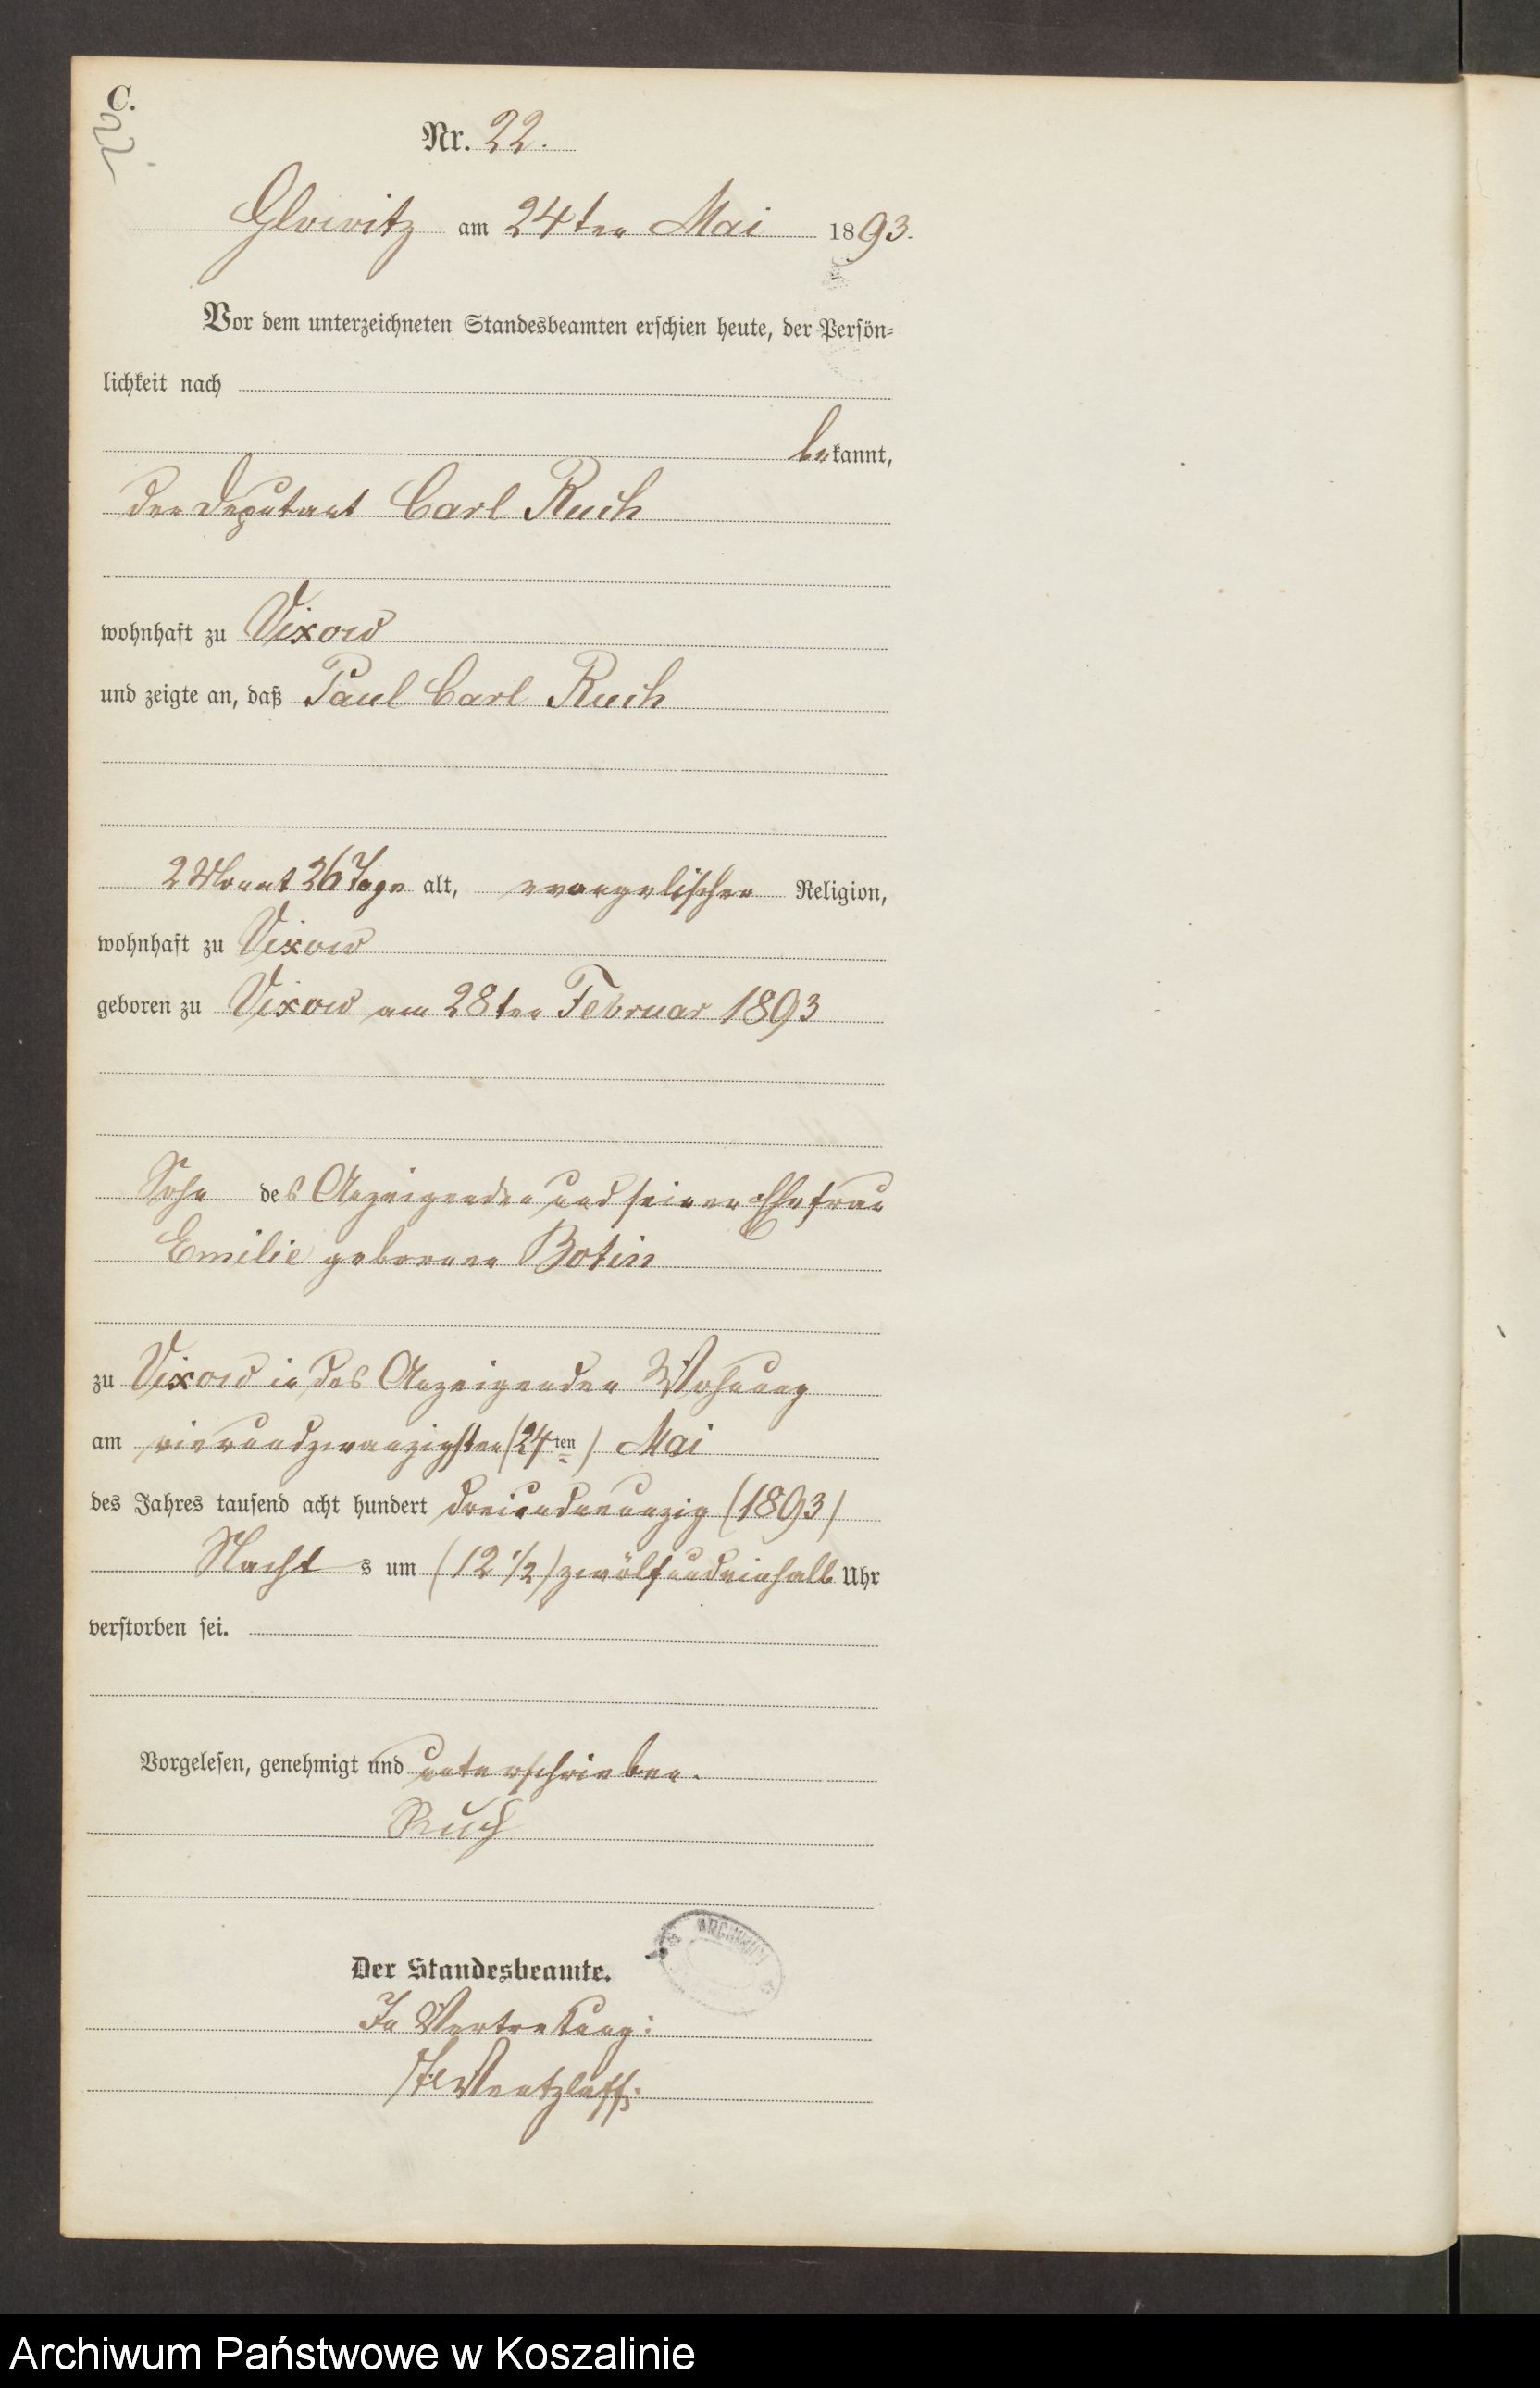 C.
22
Nr. 22.
Glowitz am 24ten Mai 1893.
Vor dem unterzeichneten Standesbeamten erschien heute, der Persön=
lichkeit nach
bekannt,
der Deputant Carl Ruch
wohnhaft zu Vixow
und zeigte an, daß Paul Carl Ruch
2 Monat 26 Tage alt, evangelischer Religion,
wohnhaft zu Vixow
geboren zu Vixow am 28ten Februar 1893
Sohn des Anzeigenden und seiner Ehefrau
Emilie geborenen Botin
zu Vixow in des Anzeigenden Wohnung
am vierundzwanzigsten (24ten) Mai
des Jahres tausend acht hundert dreiundneunzig (1893)
Nachts um (12 1/2) zwölfundeinhalb Uhr
verstorben sei.
Vorgelesen, genehmigt und unterschrieben.
Ruch
ARCHIWUM
Der Standesbeamte.
In Vertretung:
Wentzlaff.
Archiwum Państwowe w Koszalinie